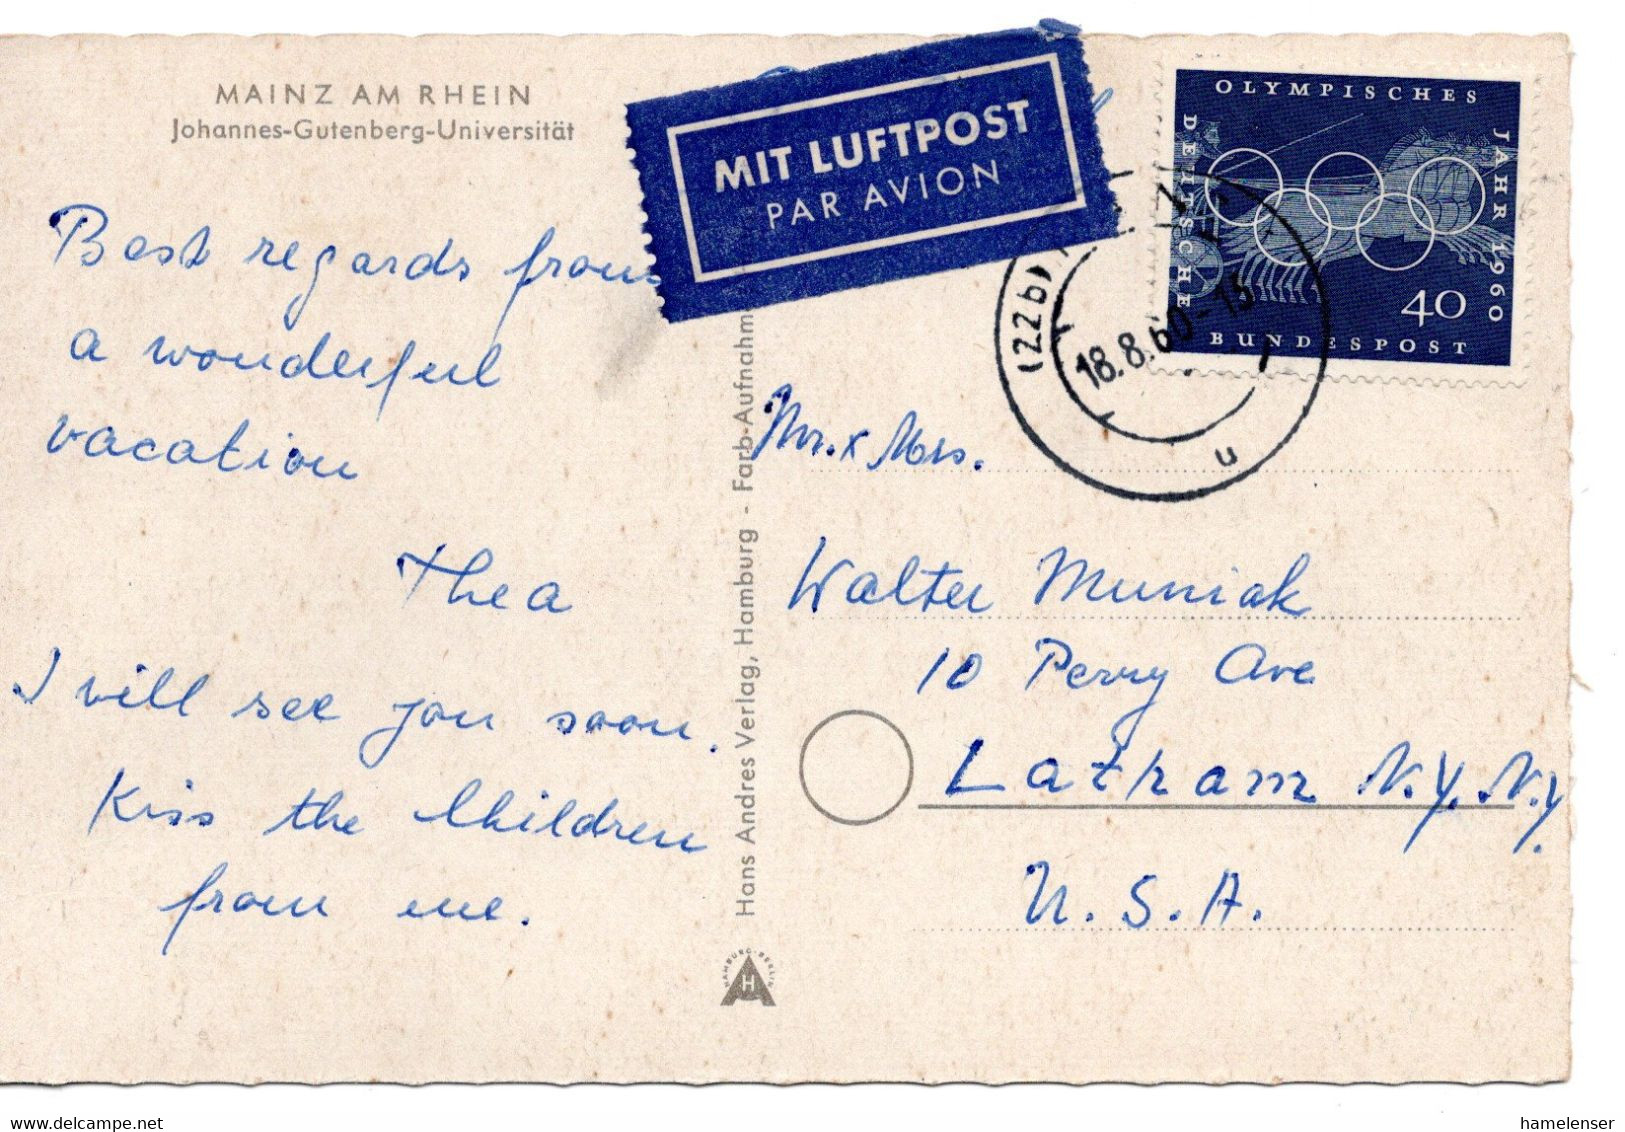 MAINZ AM RHEIN
Johannes-Gutenberg-Universität
Best regards from
a wonderful
vacation
Thea
I will see you soon.
Kiss the Children
from me.
Hans Andres Verlag, Hamburg - Farb-Aufnahme
HAMBURG-BERLIN
H
MIT LUFTPOST
PAR AVION
OLYMPISCHES
JAHR 1960
DEUTSCHE
BUNDESPOST
40
(22b)
18.8.60-15
u
Mr. x Mrs.
Walter Muniak
10 Perry Ave
Latham N.Y. N.Y.
U.S.A.
www.delcampe.net
hamelenser